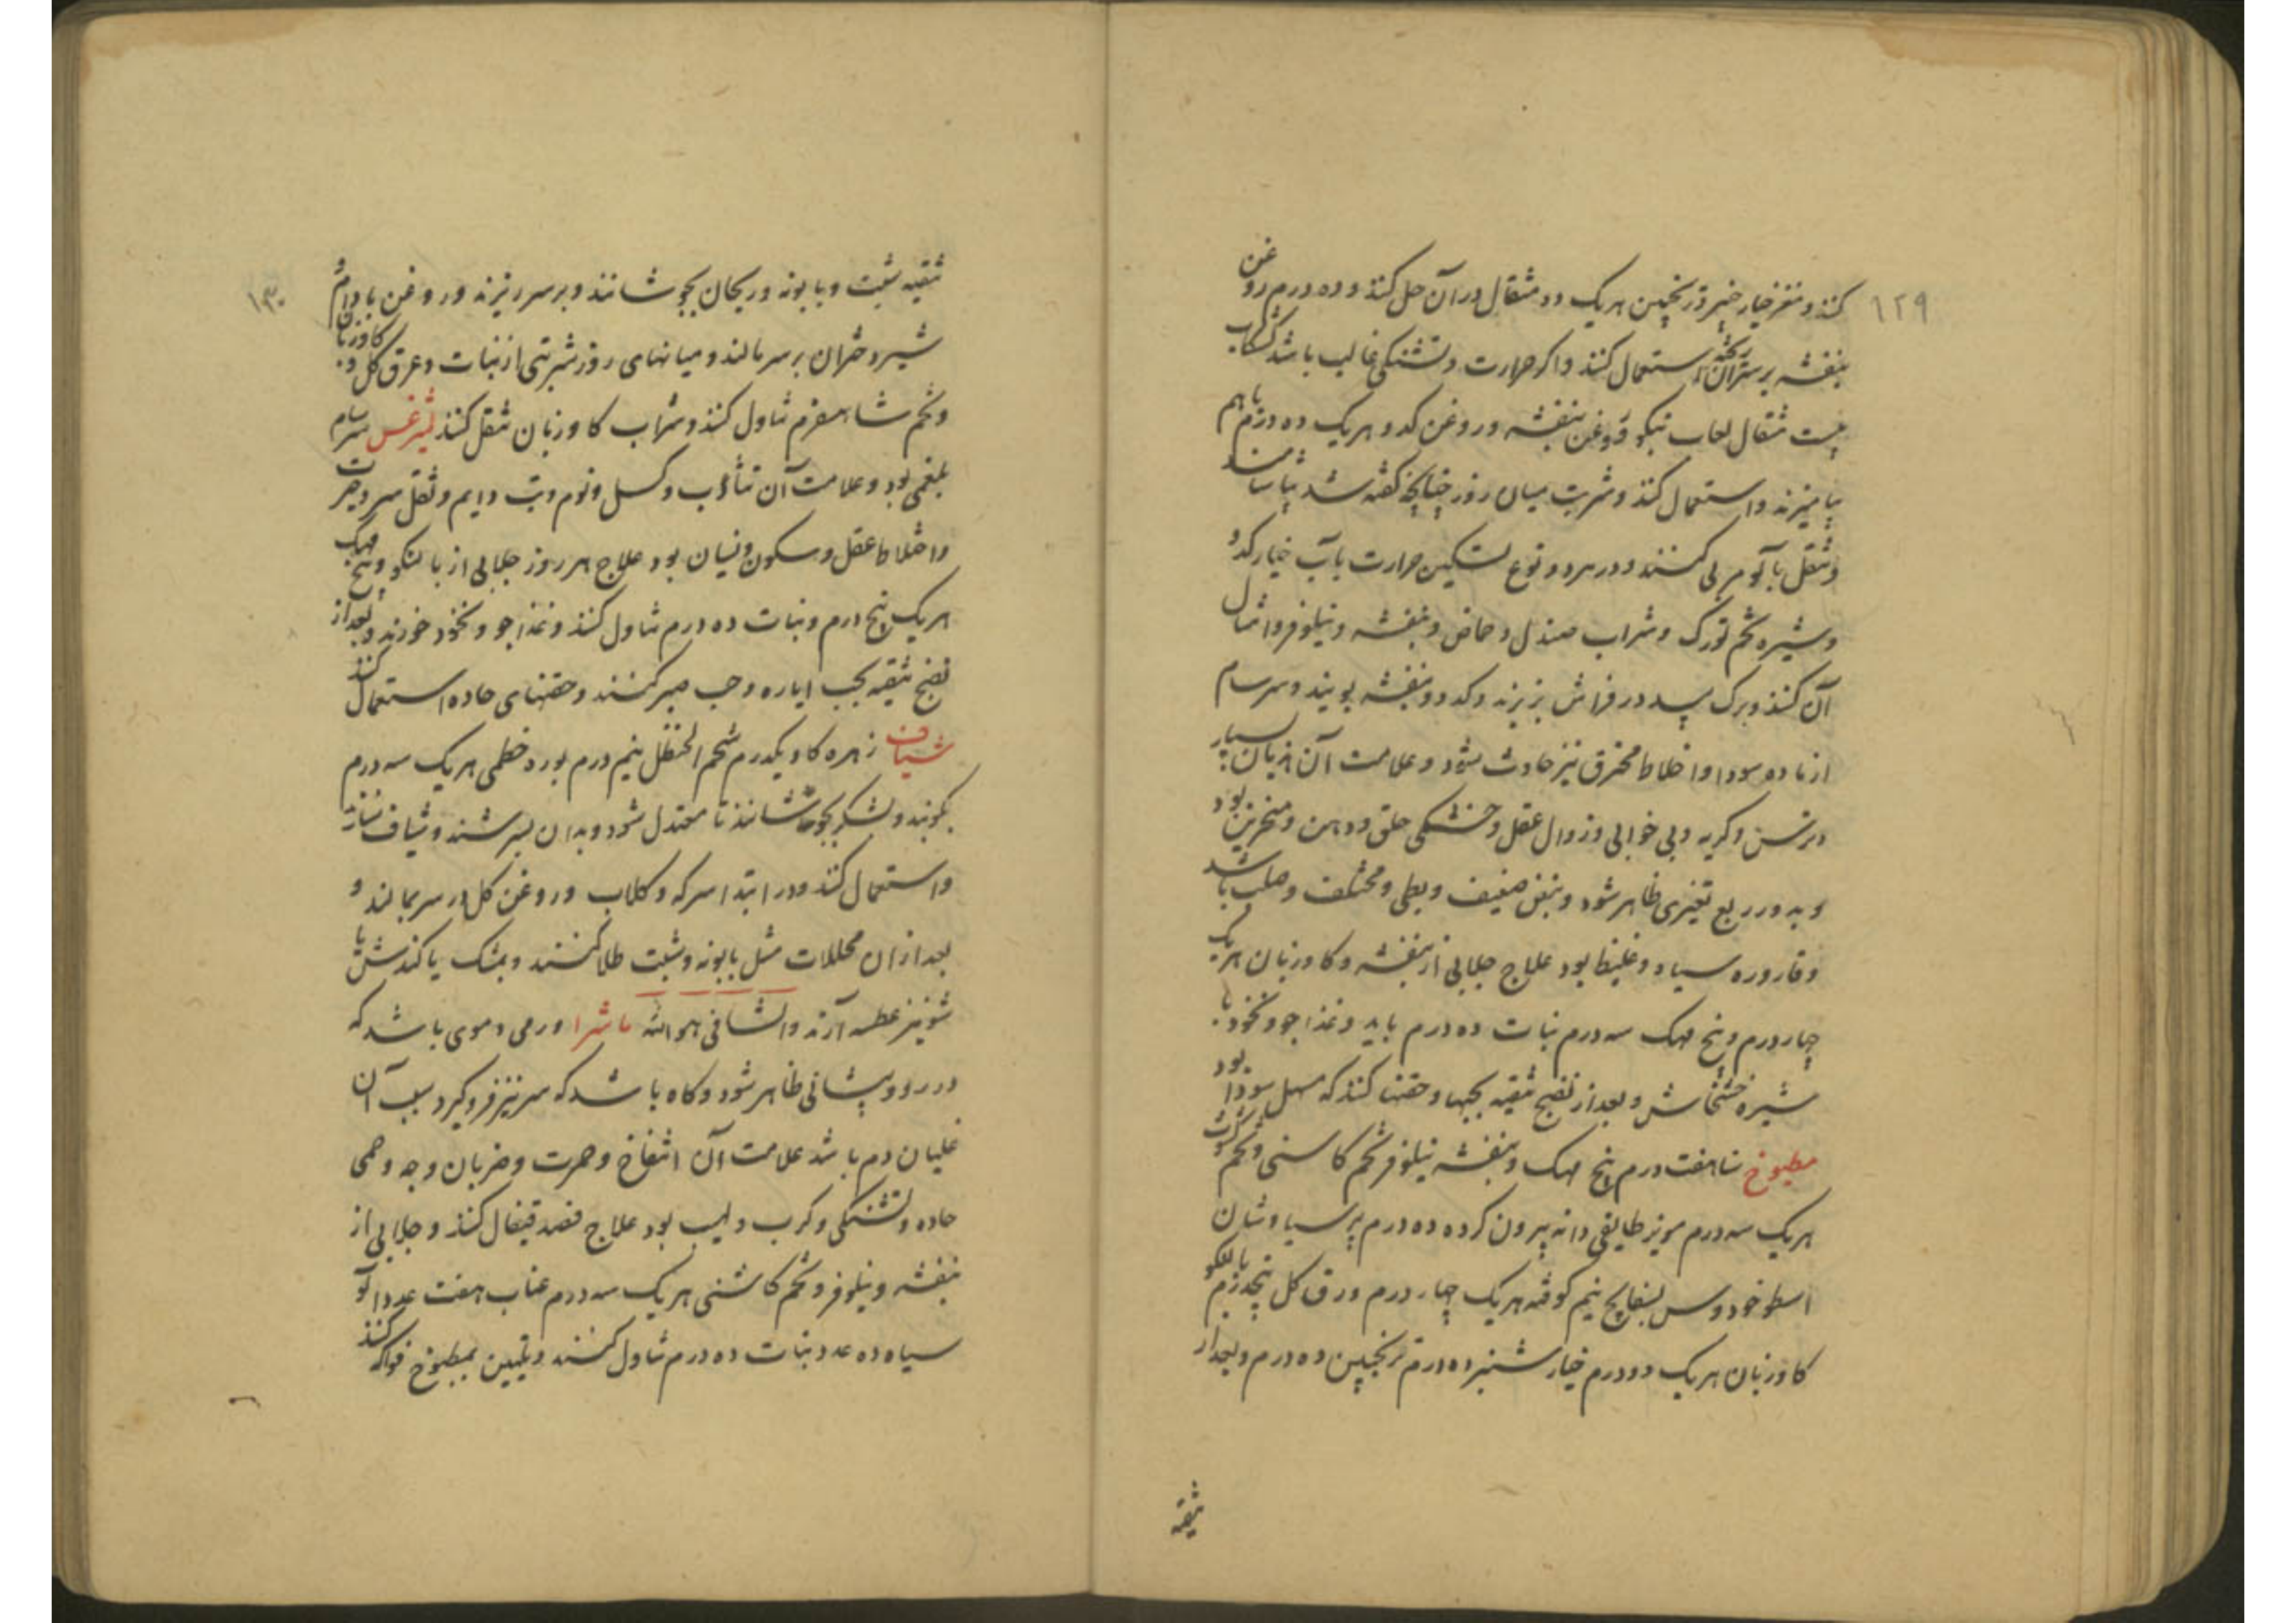 ۱۲۹
کنند و مغز خیار چنبر و ترنجبین هریک ده مثقال در آن حل کنند و ده درم روغن
بنفشه بر سر آن ریخته استعمال کنند و اکر حرارت و تشنکی غالب باشد کشکاب
بیست مثقال لعاب بنکو و روغن بنفشه و روغن کدو هریک ده درم باهم
بیامیزند و استعمال کنند و شربت میان روز چنانچه کفته شد بیاشامند
و تنقل بآلو مربی کنند و در هر دو نوع تسکین حرارت بآب خیار و کدو
و شیره تخم تورک و شراب صندل و حماض و بنفشه و نیلوفر و امثال
آن کنند و برک بید در فراش بریزند و کدو و بنفشه بویند و سرسام
از ماده سودا و اخلاط محترق نیز حادث شود و علامت آن هذیان بسیار
و ترس و کریه و بی خوابی و زوال عقل و خشکی حلق و دهن و منخرین بود
و بدور ربع تغیری ظاهر شود و نبض ضعیف و بطی و مختلف و صلب باشد
و قاروره سیاه و غلیظ بود علاج جلابی از بنفشه و کاوزبان هریک
چهار درم و بیخ مهک سه درم نبات ده درم باید و غذا جو و نخود با
شیره خشخاش و بعد از نضج تنقیه بحبها و حقنها کنند که مسهل سودا بود
مطبوخ سنا هفت درم بیخ مهک و بنفشه نیلوفر تخم کاسنی و تخم کشوث
هریک سه درم مویز طایفی دانه بیرون کرده ده درم پرسیاوشان
اسطوخودوس بسفایج نیم کوفته هریک چهار درم ورق کل پنجدرم بالنکو
کاوزبان هریک دو درم خیار شنبر ده درم ترنجبین ده درم و بعد از
تنقیه
۱۳۰
تنقیه شبت و بابونه و ریحان بجوشانند و بر سر ریزند و روغن بادام و
شیر دختران بر سر مالند و میانهای روز شربتی از نبات و عرق کل و کاوزبان
و تخم شاهسفرم تناول کنند و شراب کاوزبان تنقل کنند لیثرغس سرسام
بلغمی بود و علامت آن تثاؤب و کسل و نوم و تب دایم و ثقل سر و حیرت
و اختلاط عقل و سکون و نسیان بود علاج هر روز جلابی از بالنکو و بیخ مهک
هریک پنج درم و نبات ده درم تناول کنند و غذا جو و نخود خورند و بعد از
نضج تنقیه بحب ایاره و حب صبر کنند و حقنهای حاده استعمال کنند
شیاف زهره کاو یکدرم شحم الحنظل نیم درم بوره خطمی هریک سه درم
بکوبند و شکر بجوشانند تا معتدل شود و بدان بسرشند و شیاف سازند
و استعمال کنند و در ابتدا سرکه و کلاب و روغن کل در سر بمالند و
بعد از ان محللات مثل بابونه و شبت طلا کنند و بمشک یا کندش یا
شونیز عطسه آرند والشافی هو الله ماشرا ورمی دموی باشد که
در رو و پیشانی ظاهر شود و کاه باشد که سر نیز فرو کیرد سبب آن
غلیان دم باشد علامت آن انتفاخ و حمرت و ضربان وجه و حمی
حاده و تشنکی و کرب و لهیب بود علاج فصد قیفال کنند و جلابی از
بنفشه و نیلوفر و تخم کاسنی هریک سه درم عناب هفت عدد آلو
سیاه ده عدد نبات ده درم تناول کنند و تلیین بمطبوخ فواکه کنند